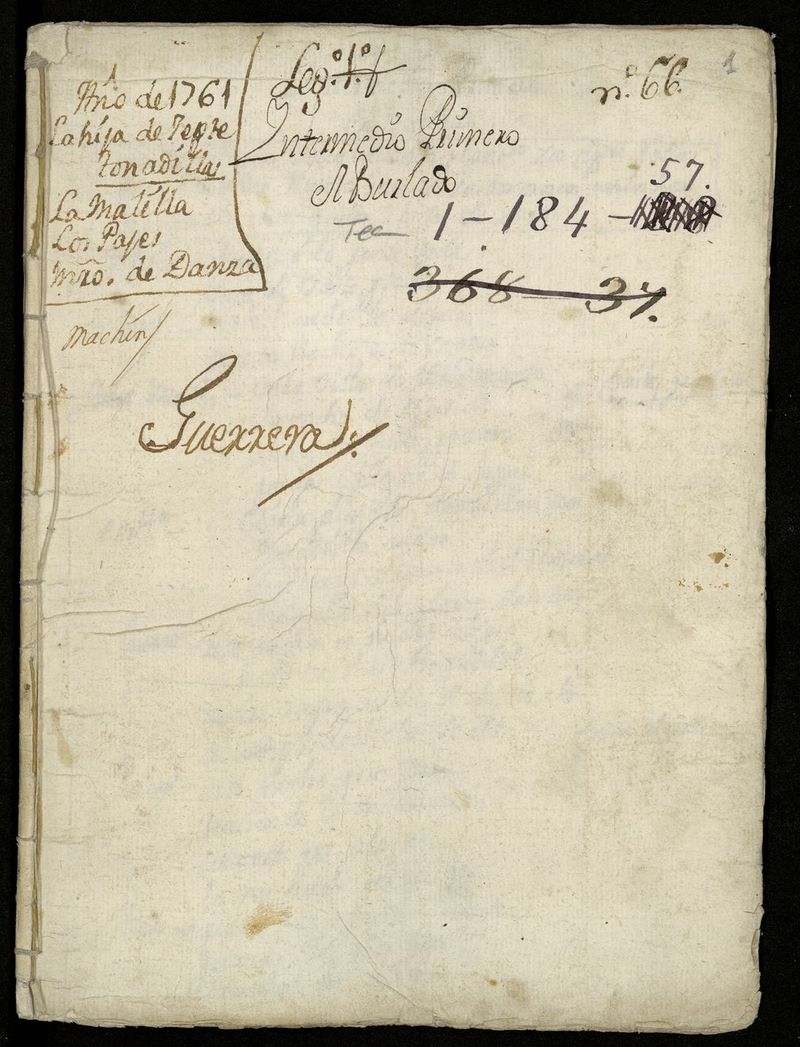 Año de 1761
La hija de Jepte
tonadillas
La Matilla
Los Pajes
Mro. de Danza
Machin
Leg.º 1.º
n.º 66.
1
Intermedio Primero
El Burlado
57.
Tea 1-184-
368-37.
Guerrero